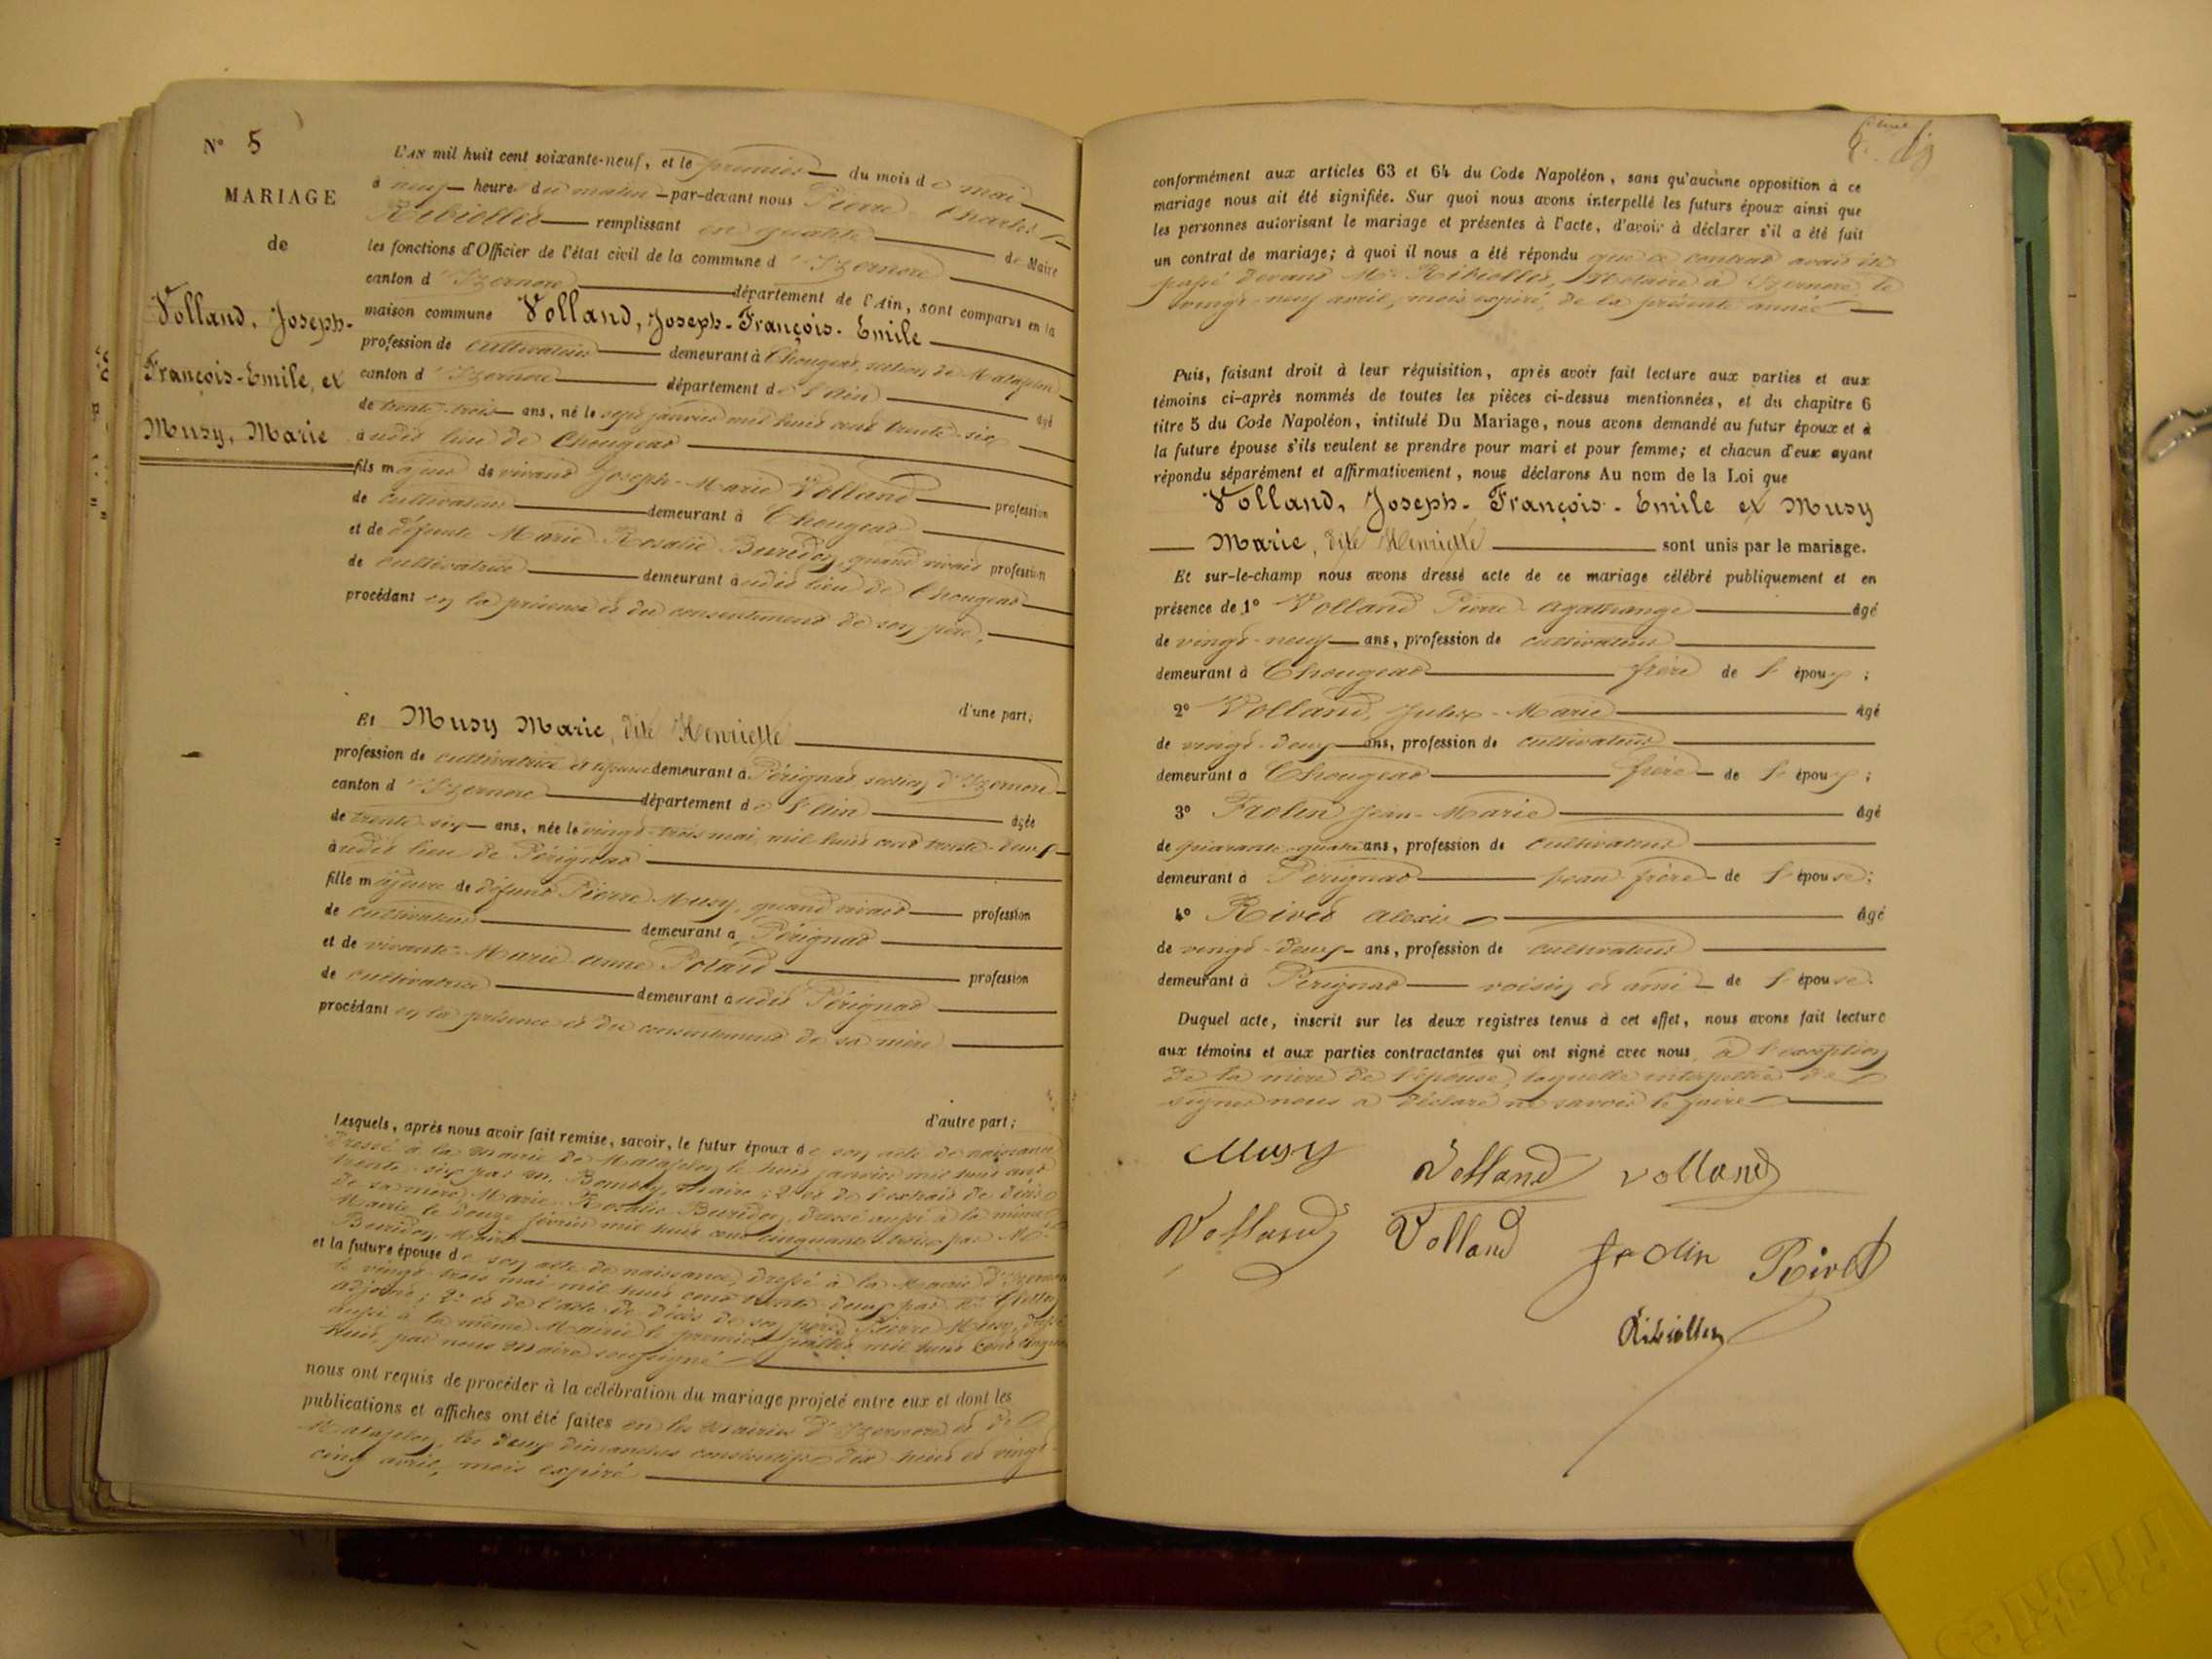 N° 5
MARIAGE
de
Volland, Joseph-
François-Emile, et
Musy, Marie
L'AN mil huit cent soixante-neuf, et le premier du mois de mai
à neuf heures du matin par-devant nous Pierre Charles
Ribiollet remplissant en qualité de Maire
les fonctions d'Officier de l'état civil de la commune d'Izernore
canton d'Izernore département de l'Ain, sont comparus en la
maison commune Volland, Joseph-François-Emile
profession de cultivateur demeurant à Chougeat, section de Matafelon
canton d'Izernore département de l'Ain âgé
de trente-trois ans, né le sept janvier mil huit cent trente-six
audit lieu de Chougeat
fils majeur de vivant Joseph-Marie Volland profession
de cultivateur demeurant à Chougeat
et de défunte Marie-Rosalie Buridon, quand vivait profession
de cultivatrice demeurant audit lieu de Chougeat
procédant en la présence et du consentement de son père,
d'une part;
Et Musy Marie, dite Henriette
profession de cultivatrice demeurant à Pérignat section d'Izernore
canton d'Izernore département de l'Ain âgée
de trente-six ans, née le vingt-trois mai mil huit cent trente-deux
audit lieu de Pérignat
fille majeure de défunt Pierre Musy, quand vivait profession
de cultivateur demeurant à Pérignat
et de vivante Marie-Anne Potard profession
de cultivatrice demeurant audit Pérignat
procédant en la présence et du consentement de sa mère
d'autre part;
Lesquels, après nous avoir fait remise, savoir, le futur époux de son acte de naissance
dressé à la Mairie de Matafelon le huit janvier mil huit cent
trente-six par M. maire; 2° et de l'extrait de décès
de sa mère, Marie-Rosalie Buridon, dressé aussi à la même
Mairie le douze février mil huit cent cinquante trois par M.
Buridon, Maire
et la future épouse de son acte de naissance, dressé à la Mairie d'Izernore
le vingt-trois mai mil huit cent trente-deux par M.
adjoint; 2° et de l'acte de décès de son père Pierre Musy, dressé
aussi à la même Mairie le premier juillet mil huit cent
huit, par nous Maire soussigné
nous ont requis de procéder à la célébration du mariage projeté entre eux et dont les
publications et affiches ont été faites en les Mairies d'Izernore et de
Matafelon, les deux dimanches consécutifs dix-huit et vingt-
cinq avril, mois expiré
conformément aux articles 63 et 64 du Code Napoléon, sans qu'aucune opposition à ce
mariage nous ait été signifiée. Sur quoi nous avons interpellé les futurs époux ainsi que
les personnes autorisant le mariage et présentes à l'acte, d'avoir à déclarer s'il a été fait
un contrat de mariage; à quoi il nous a été répondu que ce contrat avait été
passé devant Me Ribiollet, Notaire à Izernore le
vingt-neuf avril, mois expiré, de la présente année
Puis, faisant droit à leur réquisition, après avoir fait lecture aux parties et aux
témoins ci-après nommés de toutes les pièces ci-dessus mentionnées, et du chapitre 6
titre 5 du Code Napoléon, intitulé Du Mariage, nous avons demandé au futur époux et à
la future épouse s'ils veulent se prendre pour mari et pour femme; et chacun d'eux ayant
répondu séparément et affirmativement, nous déclarons Au nom de la Loi que
Volland, Joseph-François-Emile et Musy
Marie, dite Henriette sont unis par le mariage.
Et sur-le-champ nous avons dressé acte de ce mariage célébré publiquement et en
présence de 1° Volland Pierre-Agathange âgé
de vingt-neuf ans, profession de cultivateur
demeurant à Chougeat frère de l'époux;
2° Volland, Jules-Marie âgé
de vingt-deux ans, profession de cultivateur
demeurant à Chougeat frère de l'époux;
3° Jean-Marie âgé
de quarante-quatre ans, profession de cultivateur
demeurant à Pérignat beau-frère de l'épouse;
4° Rivet Alexis âgé
de vingt-deux ans, profession de cultivateur
demeurant à Pérignat voisin et ami de l'épouse.
Duquel acte, inscrit sur les deux registres tenus à cet effet, nous avons fait lecture
aux témoins et aux parties contractantes qui ont signé avec nous, à l'exception
de la mère de l'épouse, laquelle interpellée de
signer nous a déclaré ne savoir le faire
Musy Volland Volland
Volland Volland Rivet
Ribiollet